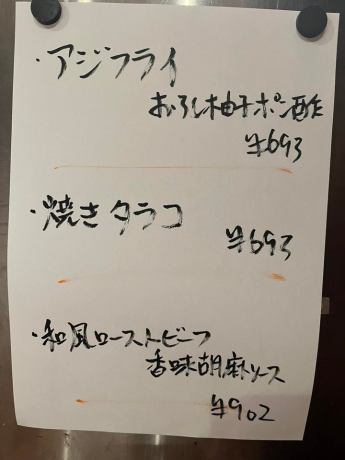 ・アジフライ
おろし柚子ポン酢
¥693
・焼きタラコ
¥693
・和風ローストビーフ
香味胡麻ソース
¥902